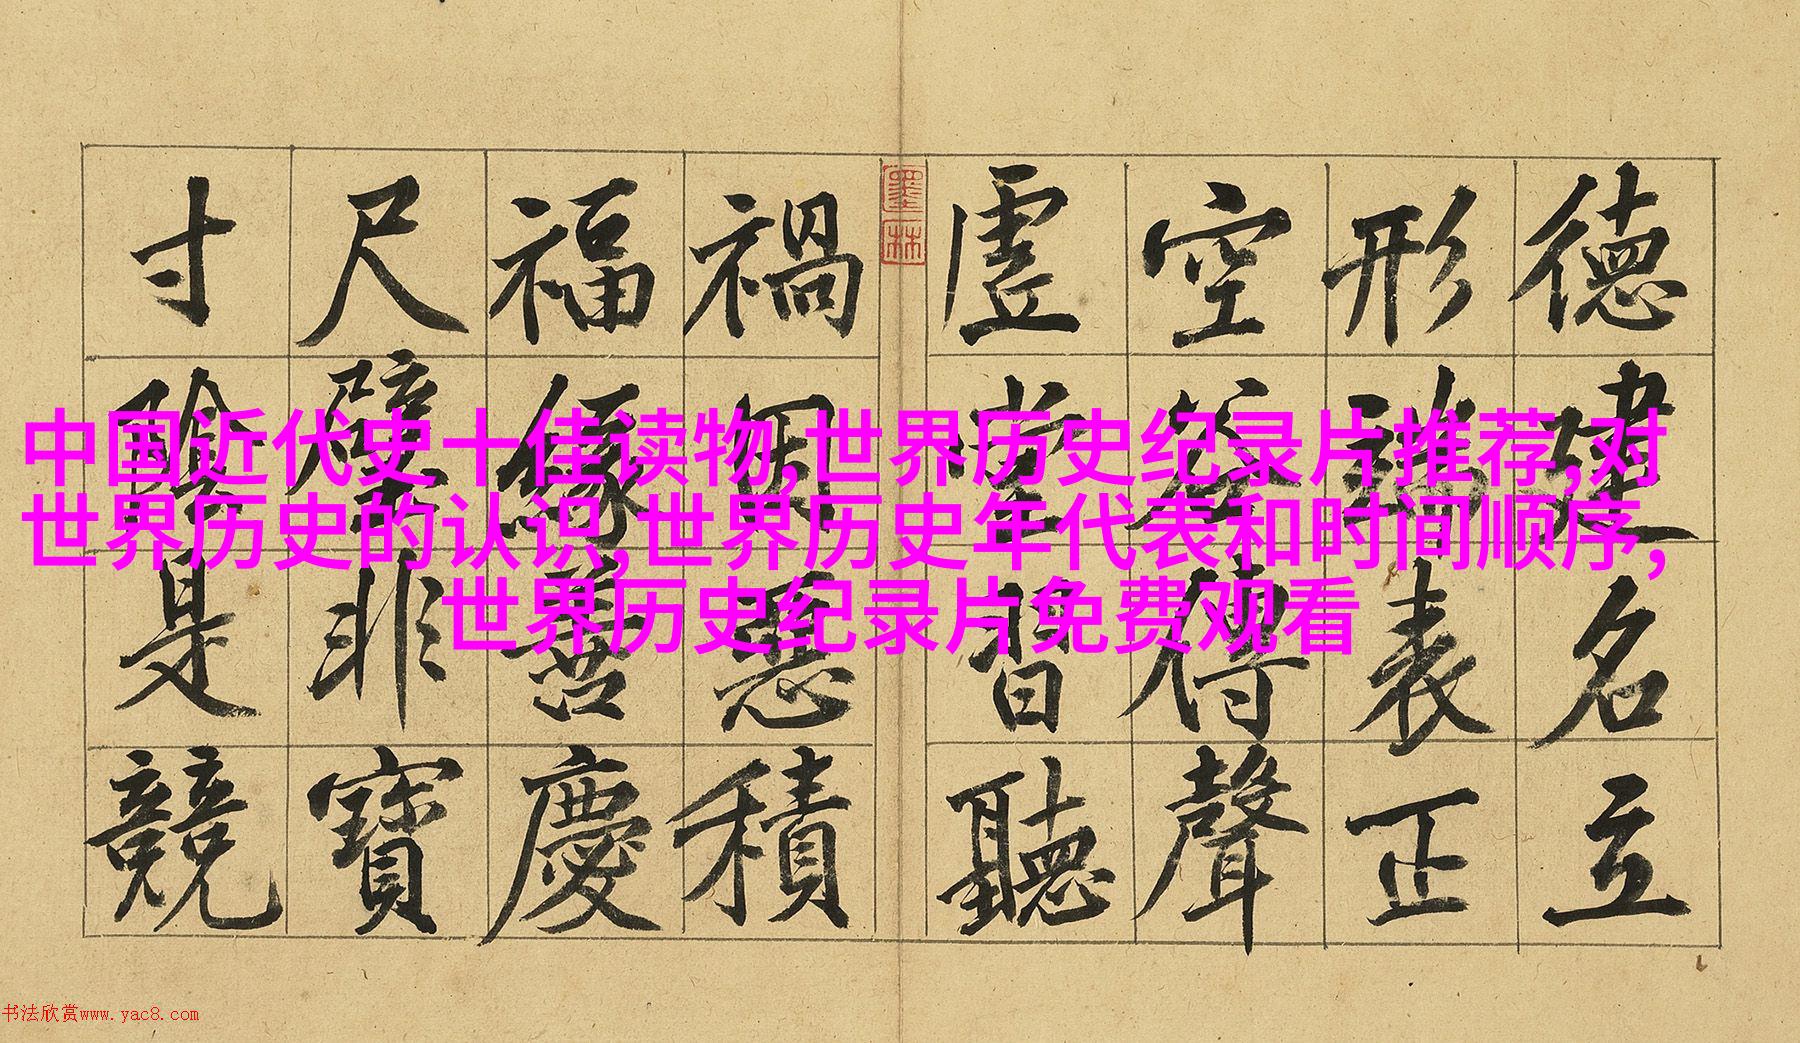 德建名立
形端表正
空谷傳聲
虛堂習聽
墨林
禍因惡積
福緣善慶
尺璧非寶
寸陰是競
中国近代史十佳读物,世界历史纪录片推荐,对
世界历史的认识,世界历史年代表和时间顺序,
世界历史纪录片免费观看
书法欣赏www.yac8.com